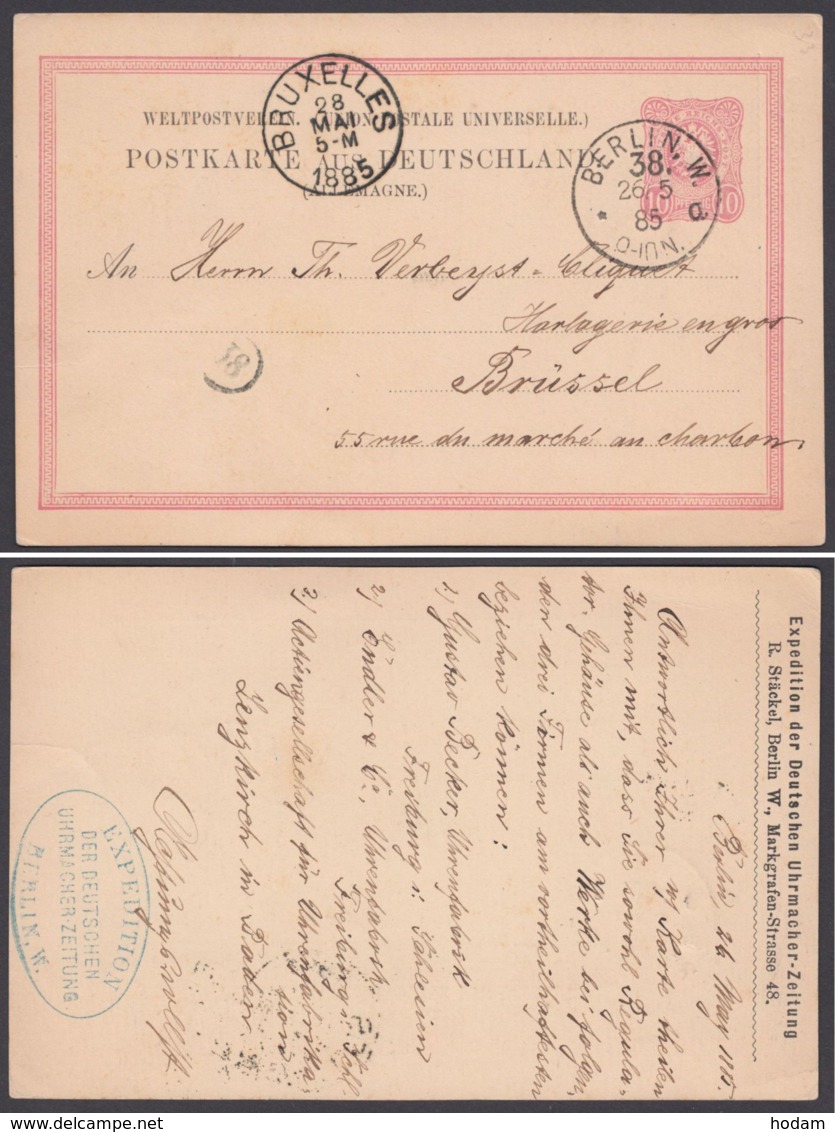 WELTPOSTVEREIN. (UNION POSTALE UNIVERSELLE.)
POSTKARTE AUS DEUTSCHLAND
(ALLEMAGNE.)
BRUXELLES
28
MAI
5-M
1885
BERLIN, W.
38.
26 5
85 a
* 9-10 N.
10 10
33
An Herrn Th. Verbeyst-Cliquet
Horlogerie en gros
Brüssel
55 rue du marché au charbon.
38
Expedition der Deutschen Uhrmacher-Zeitung
R. Stäckel, Berlin W., Markgrafen-Strasse 48.
Berlin, 26 May 1885.
Antwortlich Ihrer w/ Karte theilen
Ihnen mit, dass Sie sowohl Regula-
tor. Gehäuse als auch Werke bei folgen-
den drei Firmen am vortheilhaftesten
beziehen können:
1.) Gustav Becker, Uhrenfabrik
Freiburg i. Schlesien
2) Endler & Co., Uhrenfabrik
Freiburg i. Schl.
3) Actiengesellschaft für Uhrenfabrika-
tion
Lenzkirch in Baden.
Achtungsvollst
EXPEDITION
DER DEUTSCHEN
UHRMACHER-ZEITUNG
BERLIN. W.
hodam